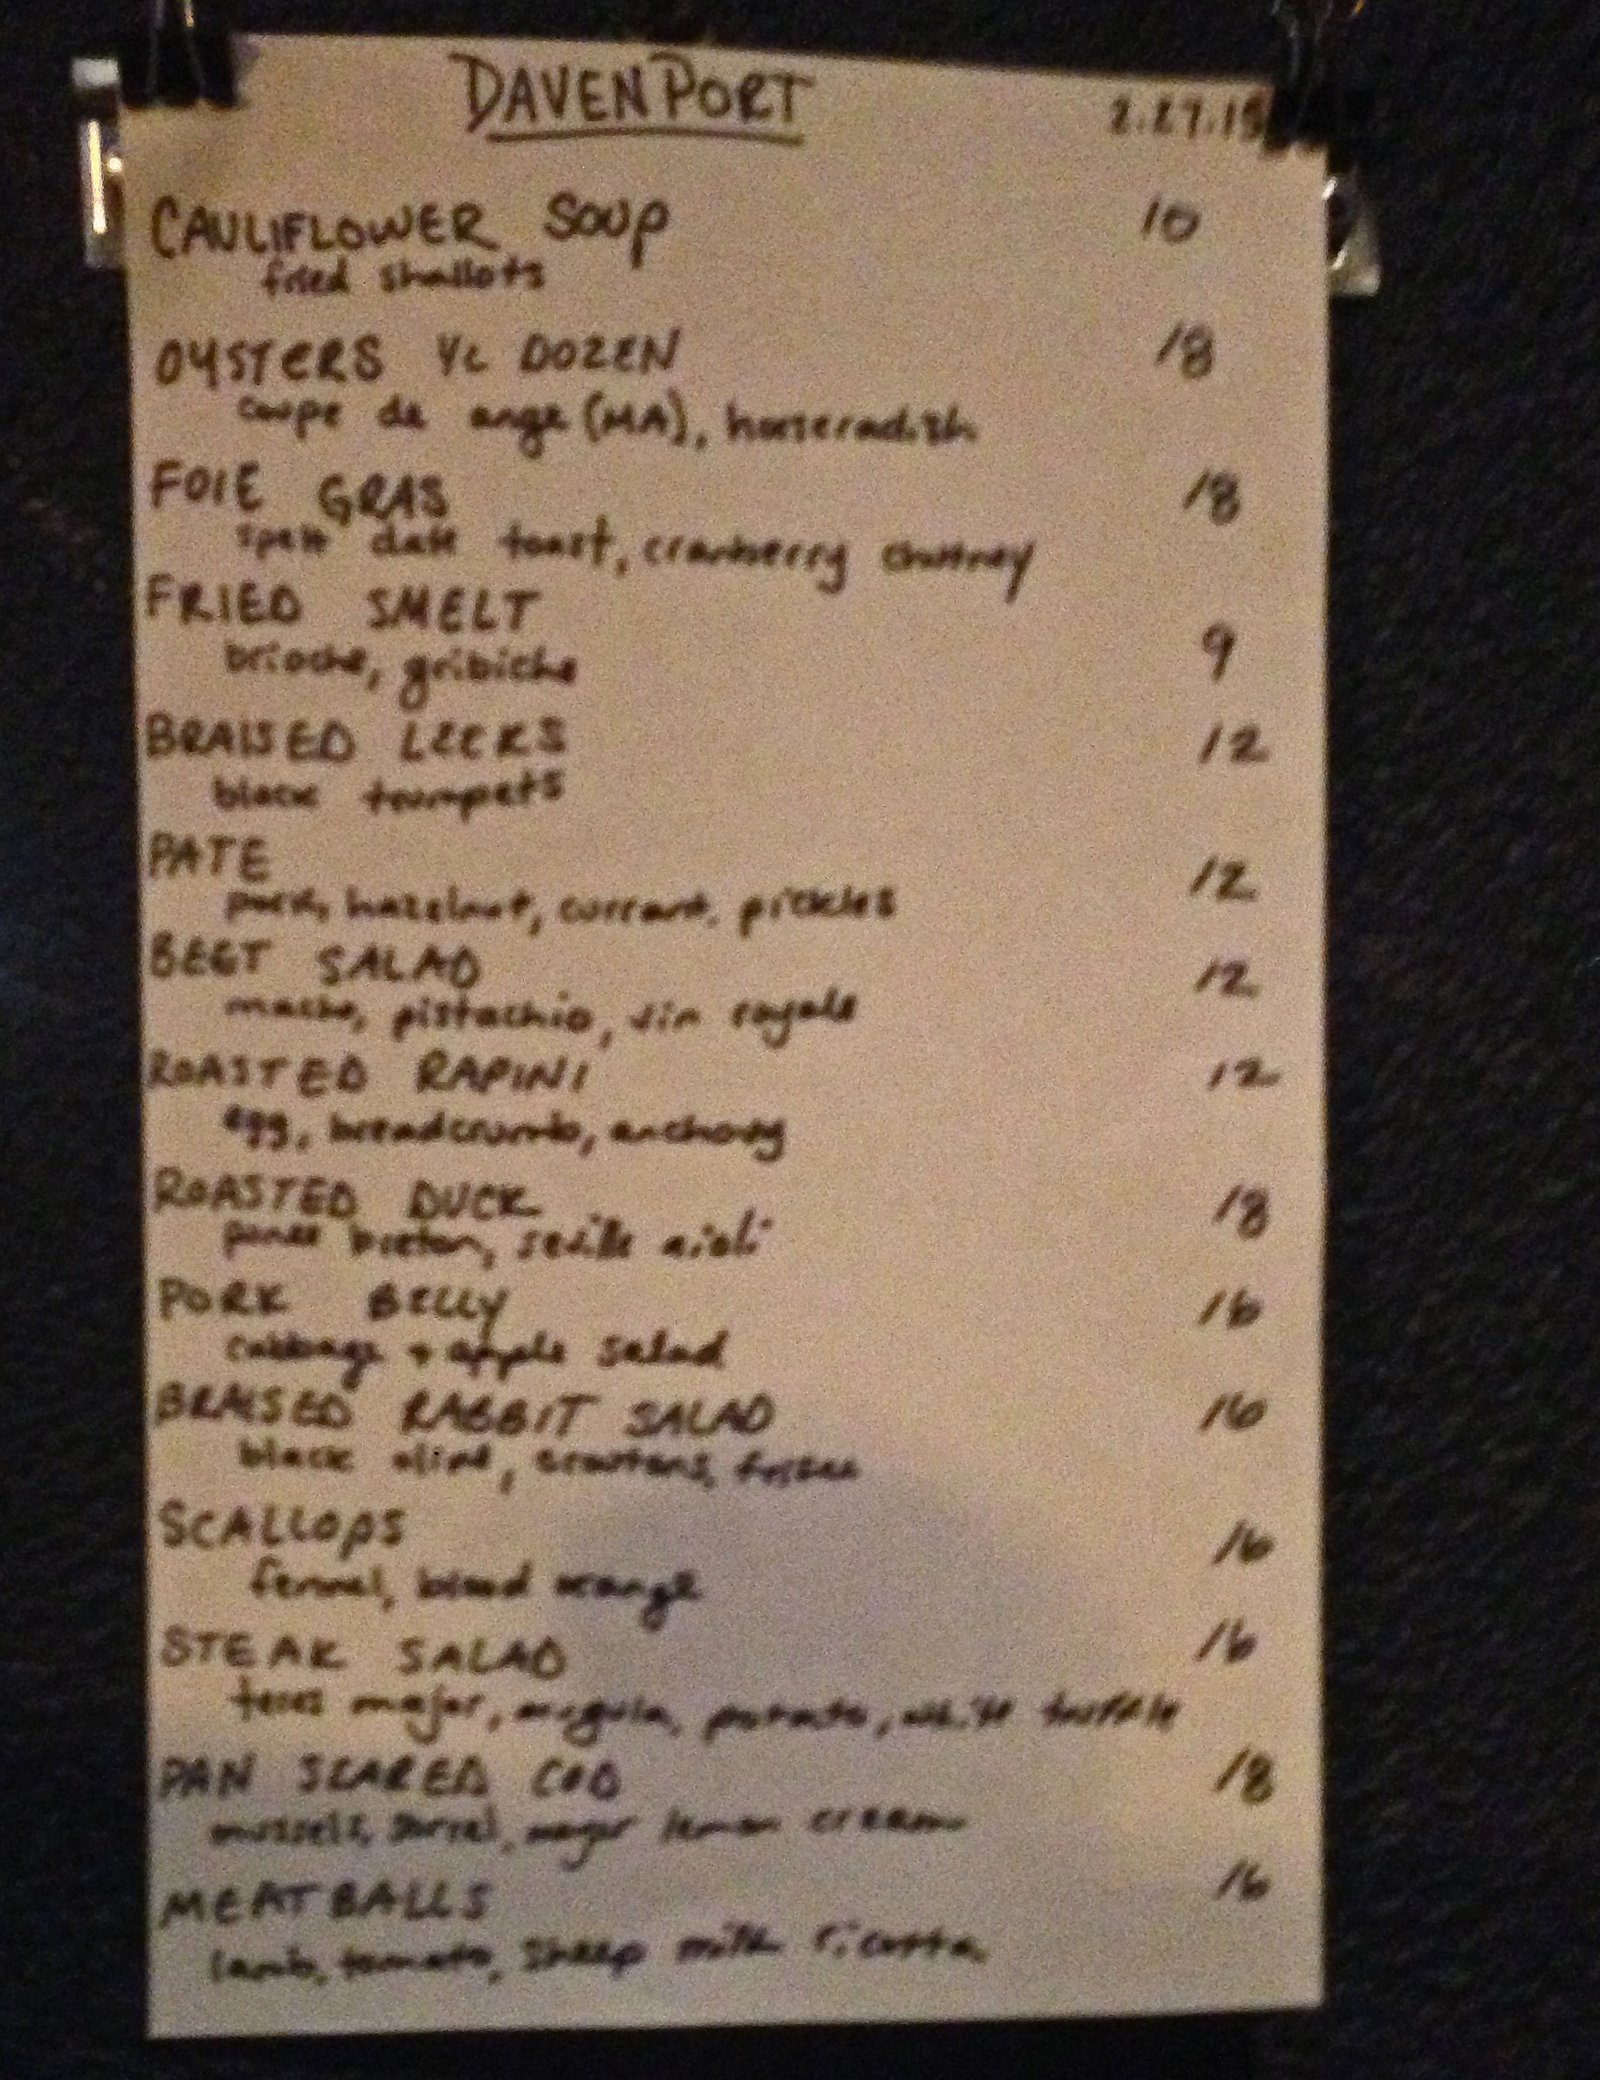 DAVENPORT 2.27.15
CAULIFLOWER SOUP 10
fried shallots
OYSTERS 1/2 DOZEN 18
coupe de ange (MA), horseradish
FOIE GRAS 18
spelt date toast, cranberry chutney
FRIED SMELT
brioche, gribiche 9
BRAISED LEEKS 12
black trumpets
PATE 12
pork, hazelnut, currant, pickles
BEET SALAD 12
mache, pistachio, vin royale
ROASTED RAPINI 12
egg, breadcrumb, anchovy
ROASTED DUCK 18
breton, seville aioli
PORK BELLY 16
cabbage + apple salad
BRAISED RABBIT SALAD 16
black olive, croutons, frisee
SCALLOPS 16
fennel, blood orange
STEAK SALAD 16
teres major, arugula, potato, white truffle
PAN SEARED COD 18
mussels, sorrel, lemon cream
MEATBALLS 16
lamb, tomato, sheep milk ricotta